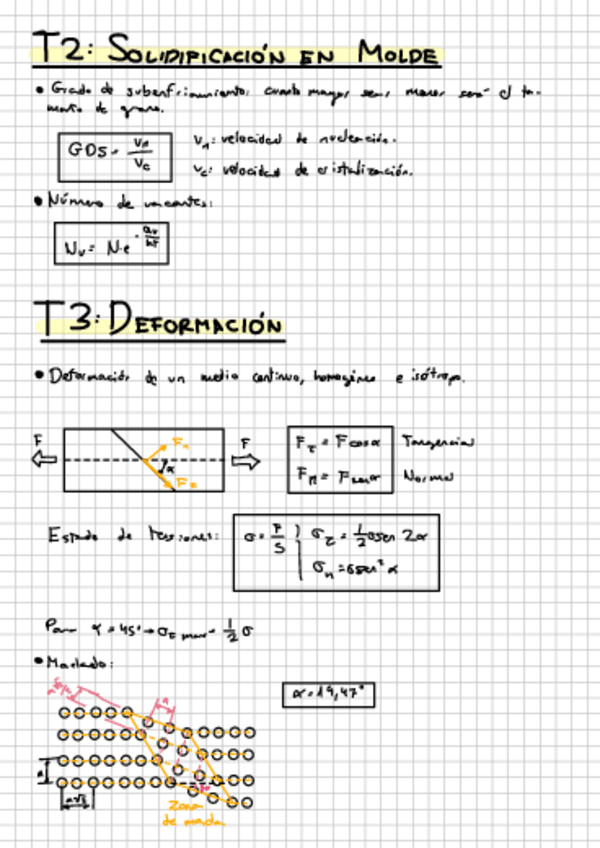 T2: SOLIDIFICACIÓN EN MOLDE
• Grado de subenfriamiento: cuanto mayor sea, menor será el ta-
maño de grano.
GDS = Vn/Vc
Vn: velocidad de nucleación.
Vc: velocidad de cristalización.
• Número de vacantes:
Nv = N·e
T3: DEFORMACIÓN
• Deformación de un medio continuo, homogéneo e isótropo.
F
F
α
Fτ = F cos α Tangencial
Fn = F sen α Normal
Estado de tensiones: σ = F/S στ = 1/2 σ sen 2α
σn = σ sen² α
Para α = 45° → στ max = 1/2 σ
• Maclado:
α = 19,47°
a
Zona
de macla